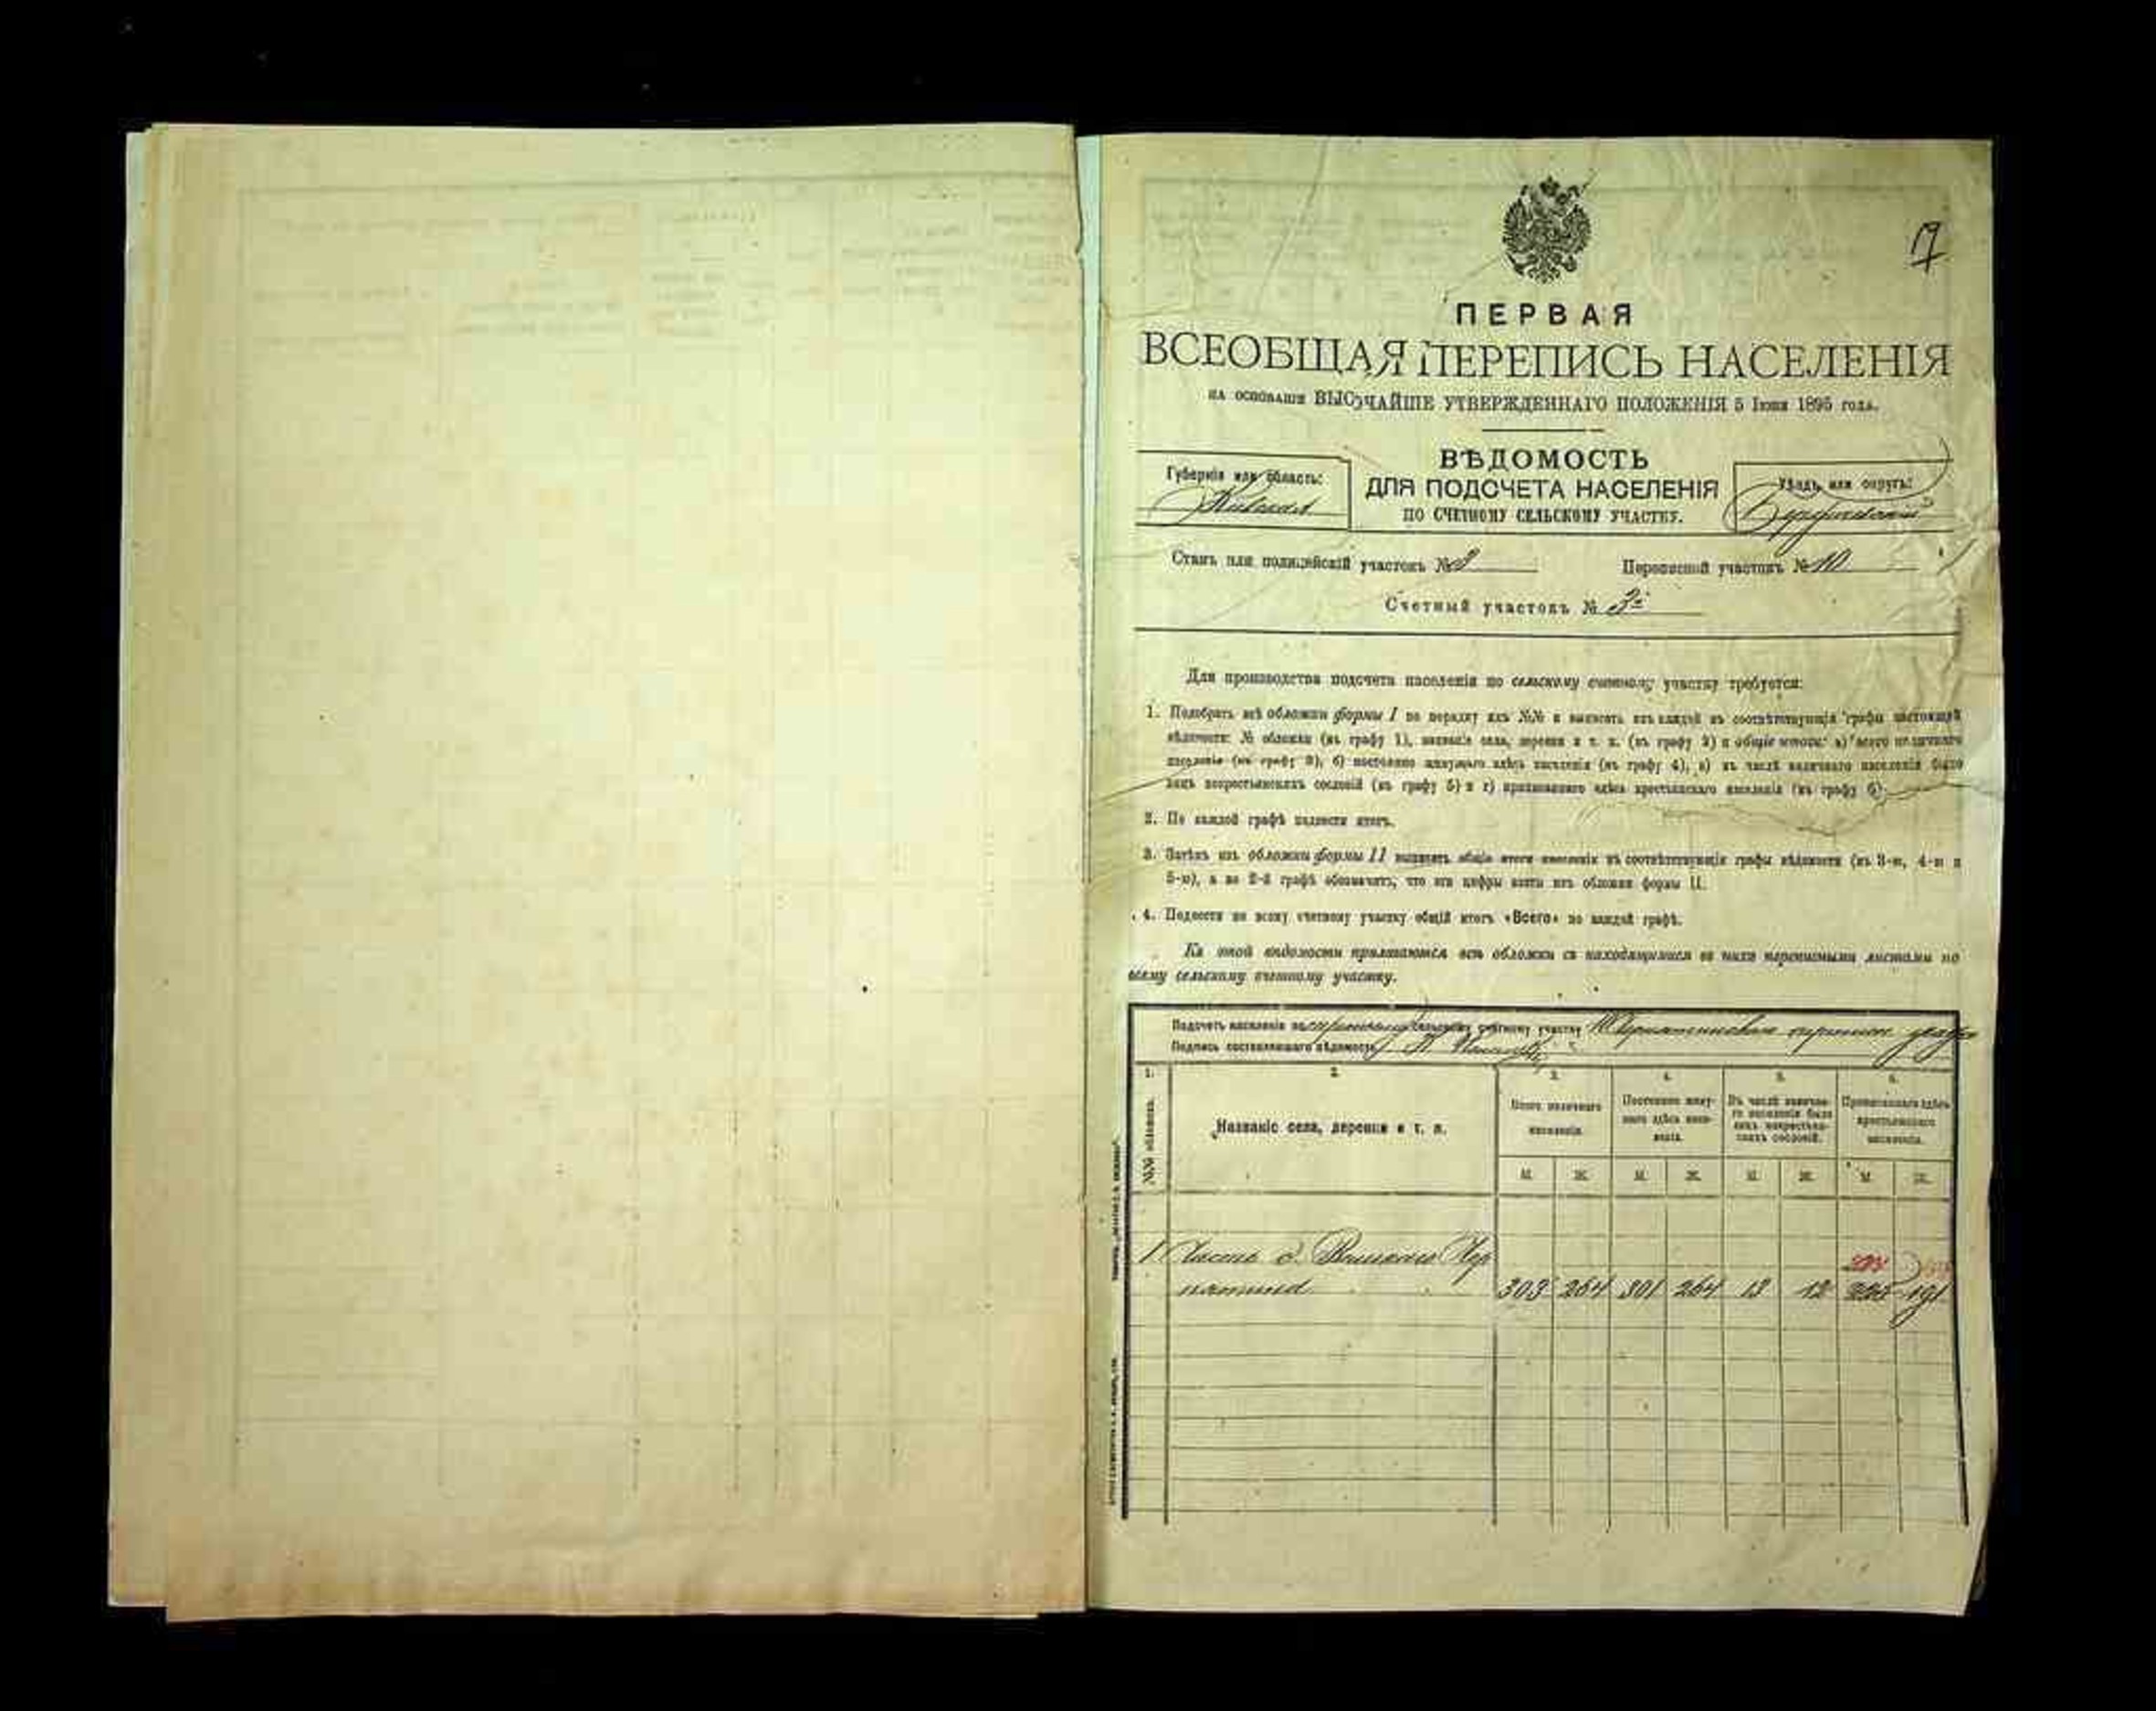 17
ПЕРВАЯ
ВСЕОБЩАЯ ПЕРЕПИСЬ НАСЕЛЕНІЯ
НА ОСНОВАНІИ ВЫСОЧАЙШЕ УТВЕРЖДЕННАГО ПОЛОЖЕНІЯ 5 Іюня 1895 года.
ВѢДОМОСТЬ
ДЛЯ ПОДСЧЕТА НАСЕЛЕНІЯ
ПО СЧЕТНОМУ СЕЛЬСКОМУ УЧАСТКУ.
Губернія или область:
Кіевская
Уѣздъ или округъ:
Бердичевскій
Станъ или полицейскій участокъ №
Переписной участокъ № 10
Счетный участокъ № 3
Для производства подсчета населенія по сельскому счетному участку требуется:
1. Подобрать всѣ обложки формы I по порядку ихъ №№ и выписать изъ каждой въ соотвѣтствующія графы настоящей
вѣдомости: № обложки (въ графу 1), названіе села, деревни и т. п. (въ графу 2) и общіе итоги: а) всего наличнаго
населенія (въ графу 3), б) постоянно живущаго здѣсь населенія (въ графу 4), в) въ числѣ наличнаго населенія было
лицъ некрестьянскихъ сословій (въ графу 5) и г) приписаннаго здѣсь крестьянскаго населенія (въ графу 6).
2. По каждой графѣ подвести итогъ.
3. Затѣмъ изъ обложки формы II выписать общіе итоги населенія въ соотвѣтствующія графы вѣдомости (въ 3-ю, 4-ю и
5-ю), а во 2-й графѣ обозначить, что эти цифры взяты изъ обложки формы II.
4. Подвести по всему счетному участку общій итогъ «Всего» по каждой графѣ.
Къ этой вѣдомости прилагаются всѣ обложки съ находящимися въ нихъ переписными листами по
всему сельскому счетному участку.
Подсчетъ населенія по сельскому счетному участку
Подпись составлявшаго вѣдомость
1. 2. 3. 4. 5. 6.
№№ обложекъ.
Названіе села, деревни и т. п.
Всего наличнаго населенія.
Постоянно живущаго здѣсь населенія.
Въ числѣ наличнаго населенія было лицъ некрестьянскихъ сословій.
Приписаннаго здѣсь крестьянскаго населенія.
М. Ж. М. Ж. М. Ж. М. Ж.
1 Часть с. Великаго Чер
303 264 301 264 13 12 191